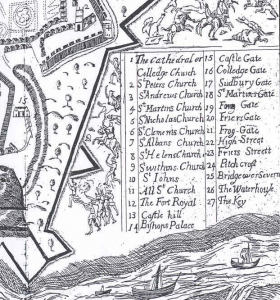 1 The Cathedral or Colledge Church
2 St Peters Church
3 St Andrews Church
4 St Martins Church
5 St Nicholas Church
6 St Clements Church
7 St Albans Church
8 St Helens Church
9 St Swithns Church
10 St Johns
11 All Sts Church
12 The Fort Royal
13 Castle hill
14 Bishops Palace
15 Castle Gate
16 Colledge Gate
17 Sudbury Gate
18 St Martins Gate
19 Gate
20 Friers Gate
21 Frog-Gate
22 High-Street
23 Friers Streett
24 Pitchcroft
25 Bridge over Severn
26 The Waterhouse
27 The Key
15